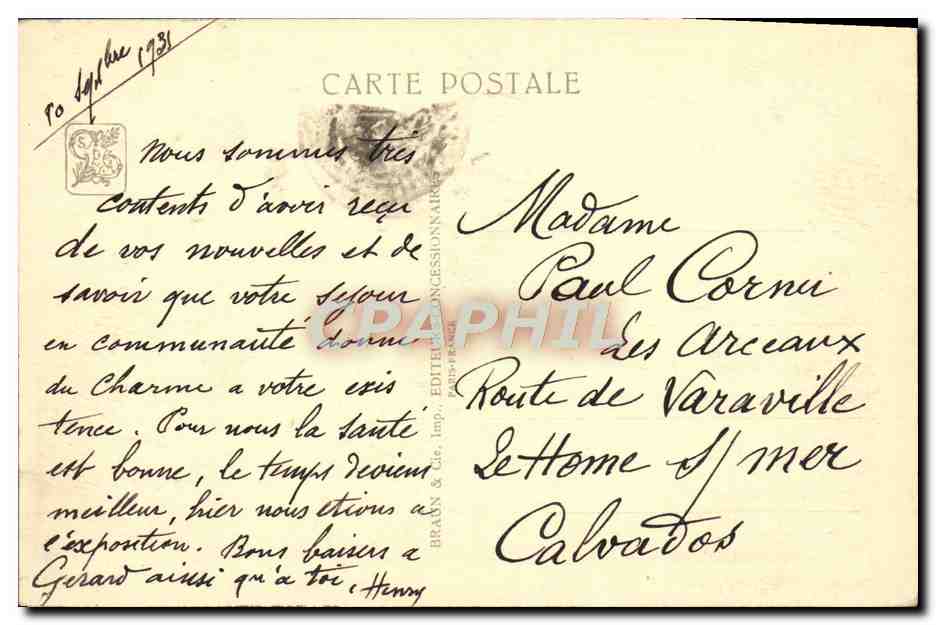 10 Septbre 1931
CARTE POSTALE
Nous sommes très
contents d'avoir reçu
de vos nouvelles et de
savoir que votre sejour
en communauté donne
du charme a votre exis
tence. Pour nous la santé
est bonne, le temps devient
meilleur, hier nous etions a
l'exposition. Bons baisers a
Gerard ainsi qu'a toi, Henry
BRAUN & Cie, Imp., EDITEURS-CONCESSIONNAIRES
PARIS-FRANCE
CPAPHIL
Madame
Paul Cornu
Les Arceaux
Route de Varaville
Le Home s/ mer
Calvados